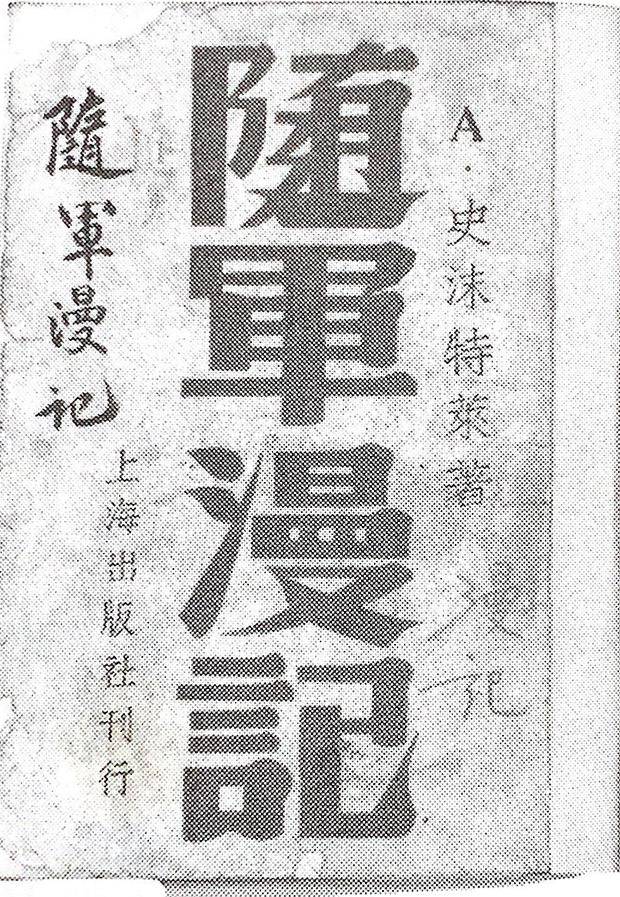 A·史沫特萊著
隨軍漫記
上海出版社刊行
隨軍漫记